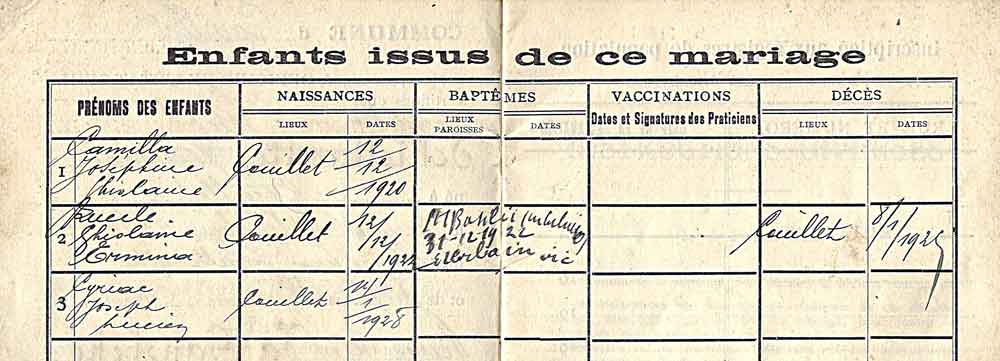 Enfants issus de ce mariage
PRÉNOMS DES ENFANTS
NAISSANCES
BAPTÊMES
VACCINATIONS
DÉCÈS
LIEUX
DATES
LIEUX
PAROISSES
DATES
Dates et Signatures des Praticiens
LIEUX
DATES
1
Camilla
Joséphine
Ghislaine
Couillet
12/12/1920
2
Lucile
Ghislaine
Erminia
Couillet
12/12/1922
31-12-1922
vic
Couillet
8/1/1925
3
Cyriac
Joseph
Lucien
Couillet
1
1928